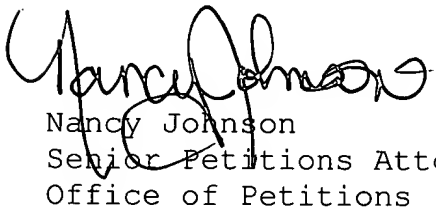 Nancy Johnson
Nancy Johnson
Senior Petitions Atto
Office of Petitions